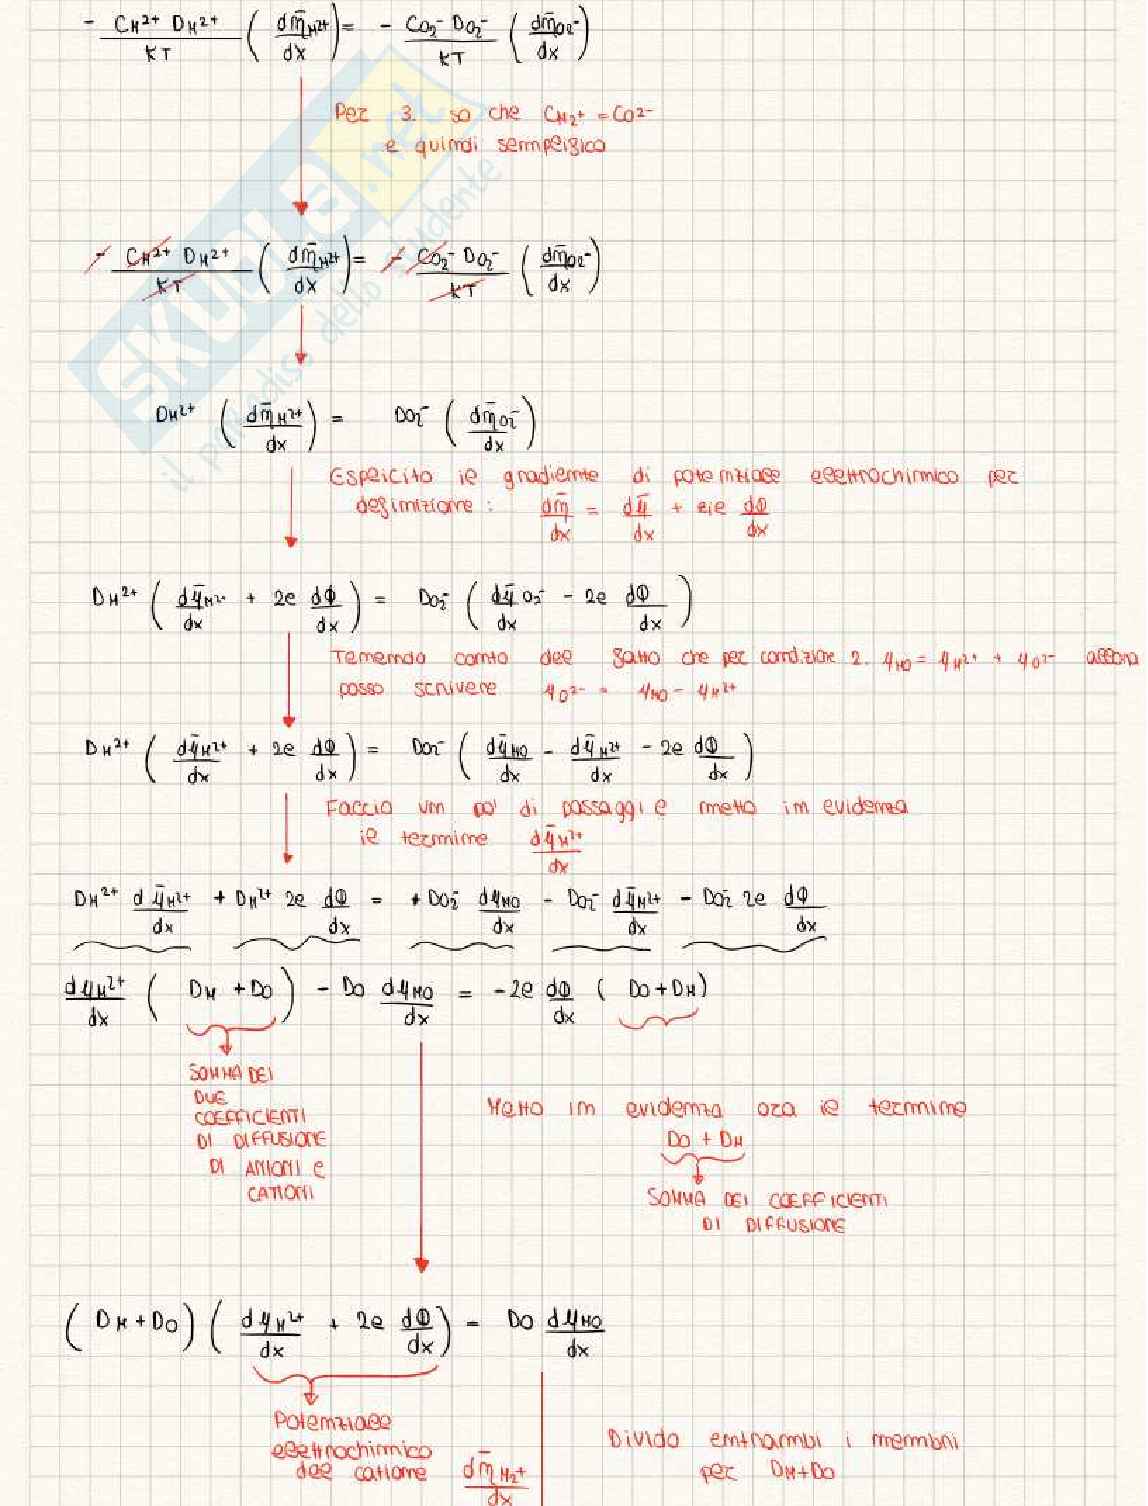 - C_M²⁺ D_M²⁺ / KT ( dη̄_M²⁺ / dx ) = - C_O₂⁻ D_O₂⁻ / KT ( dη̄_O₂⁻ / dx )
Per 3. so che C_M₂⁺ = C_O²⁻
e quindi semplifico
- C_M²⁺ D_M²⁺ / KT ( dη̄_M²⁺ / dx ) = - C_O₂⁻ D_O₂⁻ / KT ( dη̄_O₂⁻ / dx )
D_M²⁺ ( dη̄_M²⁺ / dx ) = D_O₂⁻ ( dη̄_O₂⁻ / dx )
Esplicito il gradiente di potenziale elettrochimico per
definizione : dη̄ / dx = dμ̄ / dx + zie dΦ / dx
D_M²⁺ ( dμ̄_M²⁺ / dx + 2e dΦ / dx ) = D_O₂⁻ ( dμ̄_O₂⁻ / dx - 2e dΦ / dx )
Tenendo conto del fatto che per condizione 2. μ_MO = μ_M²⁺ + μ_O²⁻ allora
posso scrivere μ_O²⁻ = μ_MO - μ_M²⁺
D_M²⁺ ( dμ̄_M²⁺ / dx + 2e dΦ / dx ) = D_O₂⁻ ( dμ̄_MO / dx - dμ̄_M²⁺ / dx - 2e dΦ / dx )
Faccio un po' di passaggi e metto in evidenza
il termine dμ̄_M²⁺ / dx
D_M²⁺ dμ̄_M²⁺ / dx + D_M²⁺ 2e dΦ / dx = + D_O₂⁻ dμ_MO / dx - D_O₂⁻ dμ̄_M²⁺ / dx - D_O₂⁻ 2e dΦ / dx
dμ_M²⁺ / dx ( D_M + D_O ) - D_O dμ_MO / dx = - 2e dΦ / dx ( D_O + D_M )
SOMMA DEI
DUE
COEFFICIENTI
DI DIFFUSIONE
DI ANIONI E
CATIONI
Metto in evidenza ora il termine
D_O + D_M
SOMMA DEI COEFFICIENTI
DI DIFFUSIONE
( D_M + D_O ) ( dμ_M²⁺ / dx + 2e dΦ / dx ) = D_O dμ_MO / dx
Potenziale
elettrochimico
del catione dη̄_M₂⁺ / dx
Divido entrambi i membri
per D_M + D_O
SKUOLA.net
il paradiso dello studente